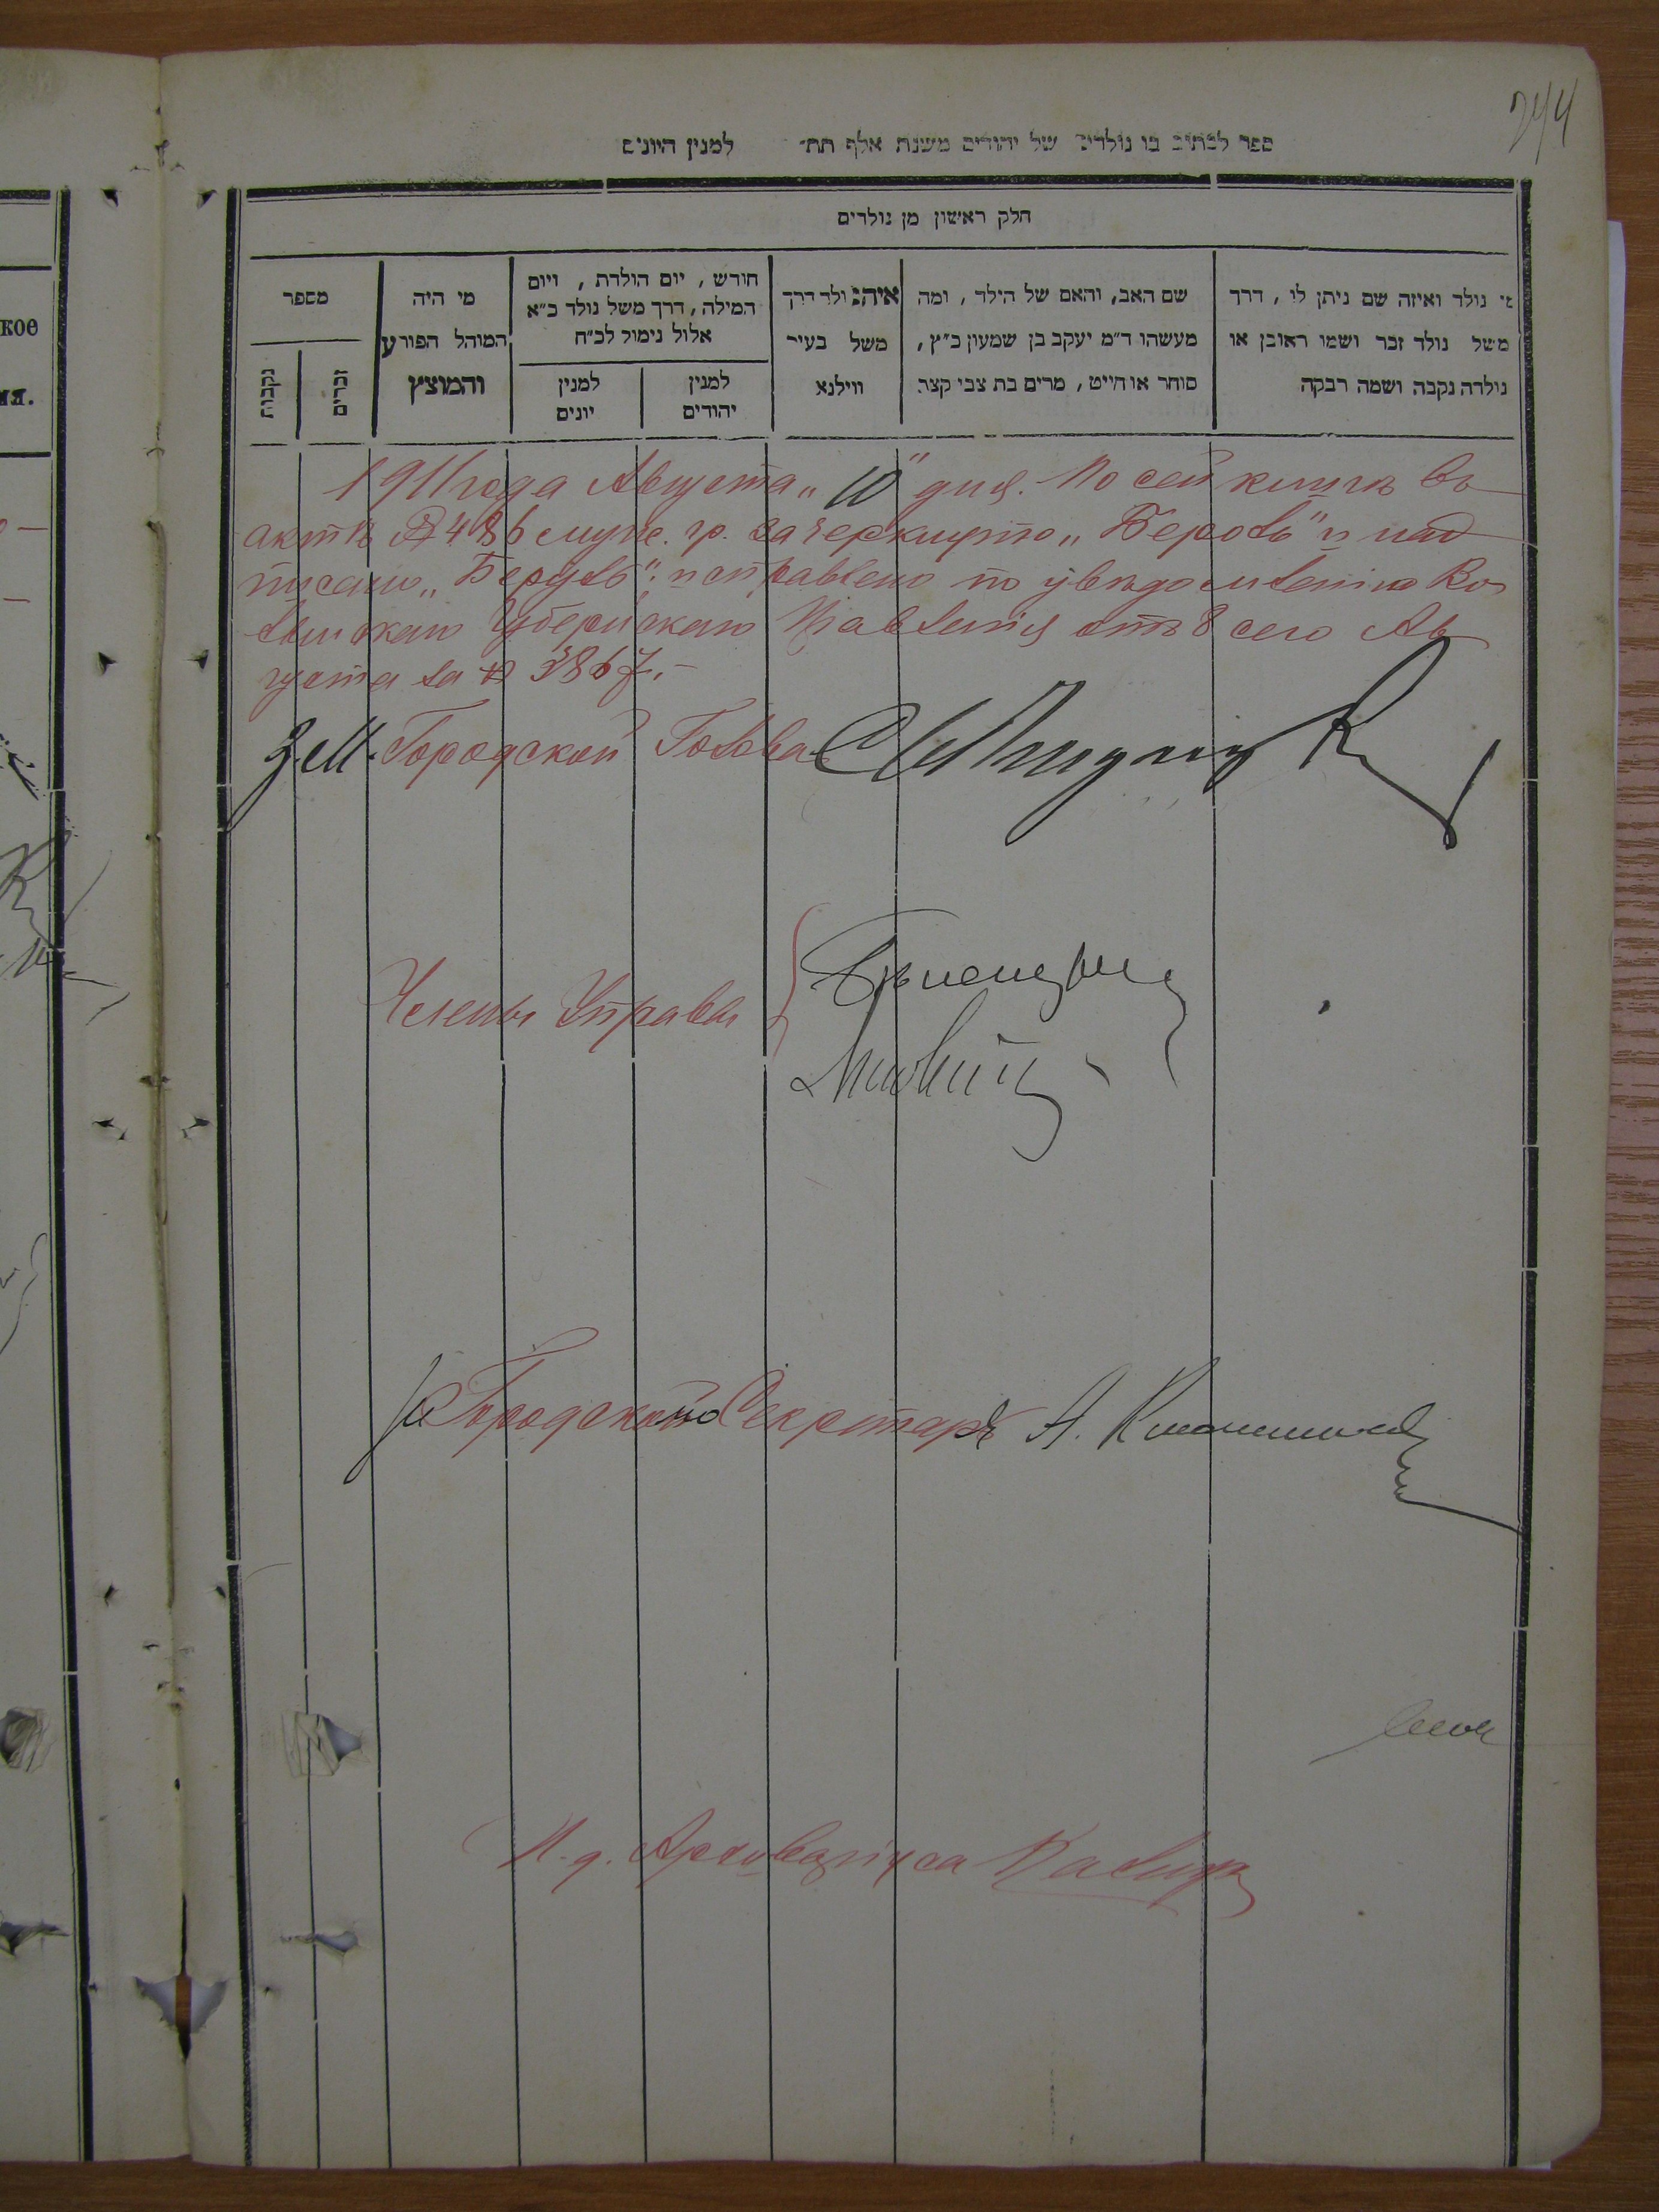 244
ספר לכתוב בו נולדים של יהודים משנת אלף תת״ למנין היונים
חלק ראשון מן נולדים
מי נולד ואיזה שם ניתן לו, דרך
משל נולד זכר ושמו ראובן או
נולדה נקבה ושמה רבקה
שם האב, והאם של הילד, ומה
מעשהו ד״מ יעקב בן שמעון כ״ץ,
סוחר או חייט, מרים בת צבי קצב
איה נולד דרך
משל בעיר
ווילנא
חורש, יום הולדת, ויום
המילה, דרך משל נולד כ״א
אלול נימול לכ״ח
למנין
יהודים
למנין
יונים
מי היה
המוהל הפורע
והמוצץ
מספר
זכרים
נקבות
кое
ия.
1911 года Августа „10" дня. По сей книгѣ въ
актѣ № 486 муж. гр. зачеркнуто „Беровъ" и над
писано „Берулъ"; исправлено по увѣдомленію Во
лынскаго Губернскаго Правленія отъ 8 сего Ав
густа за № 3867.—
З. М. Городской Голова
Члены Управы
За Городского Секретаря А.
И. д. Архиваріуса